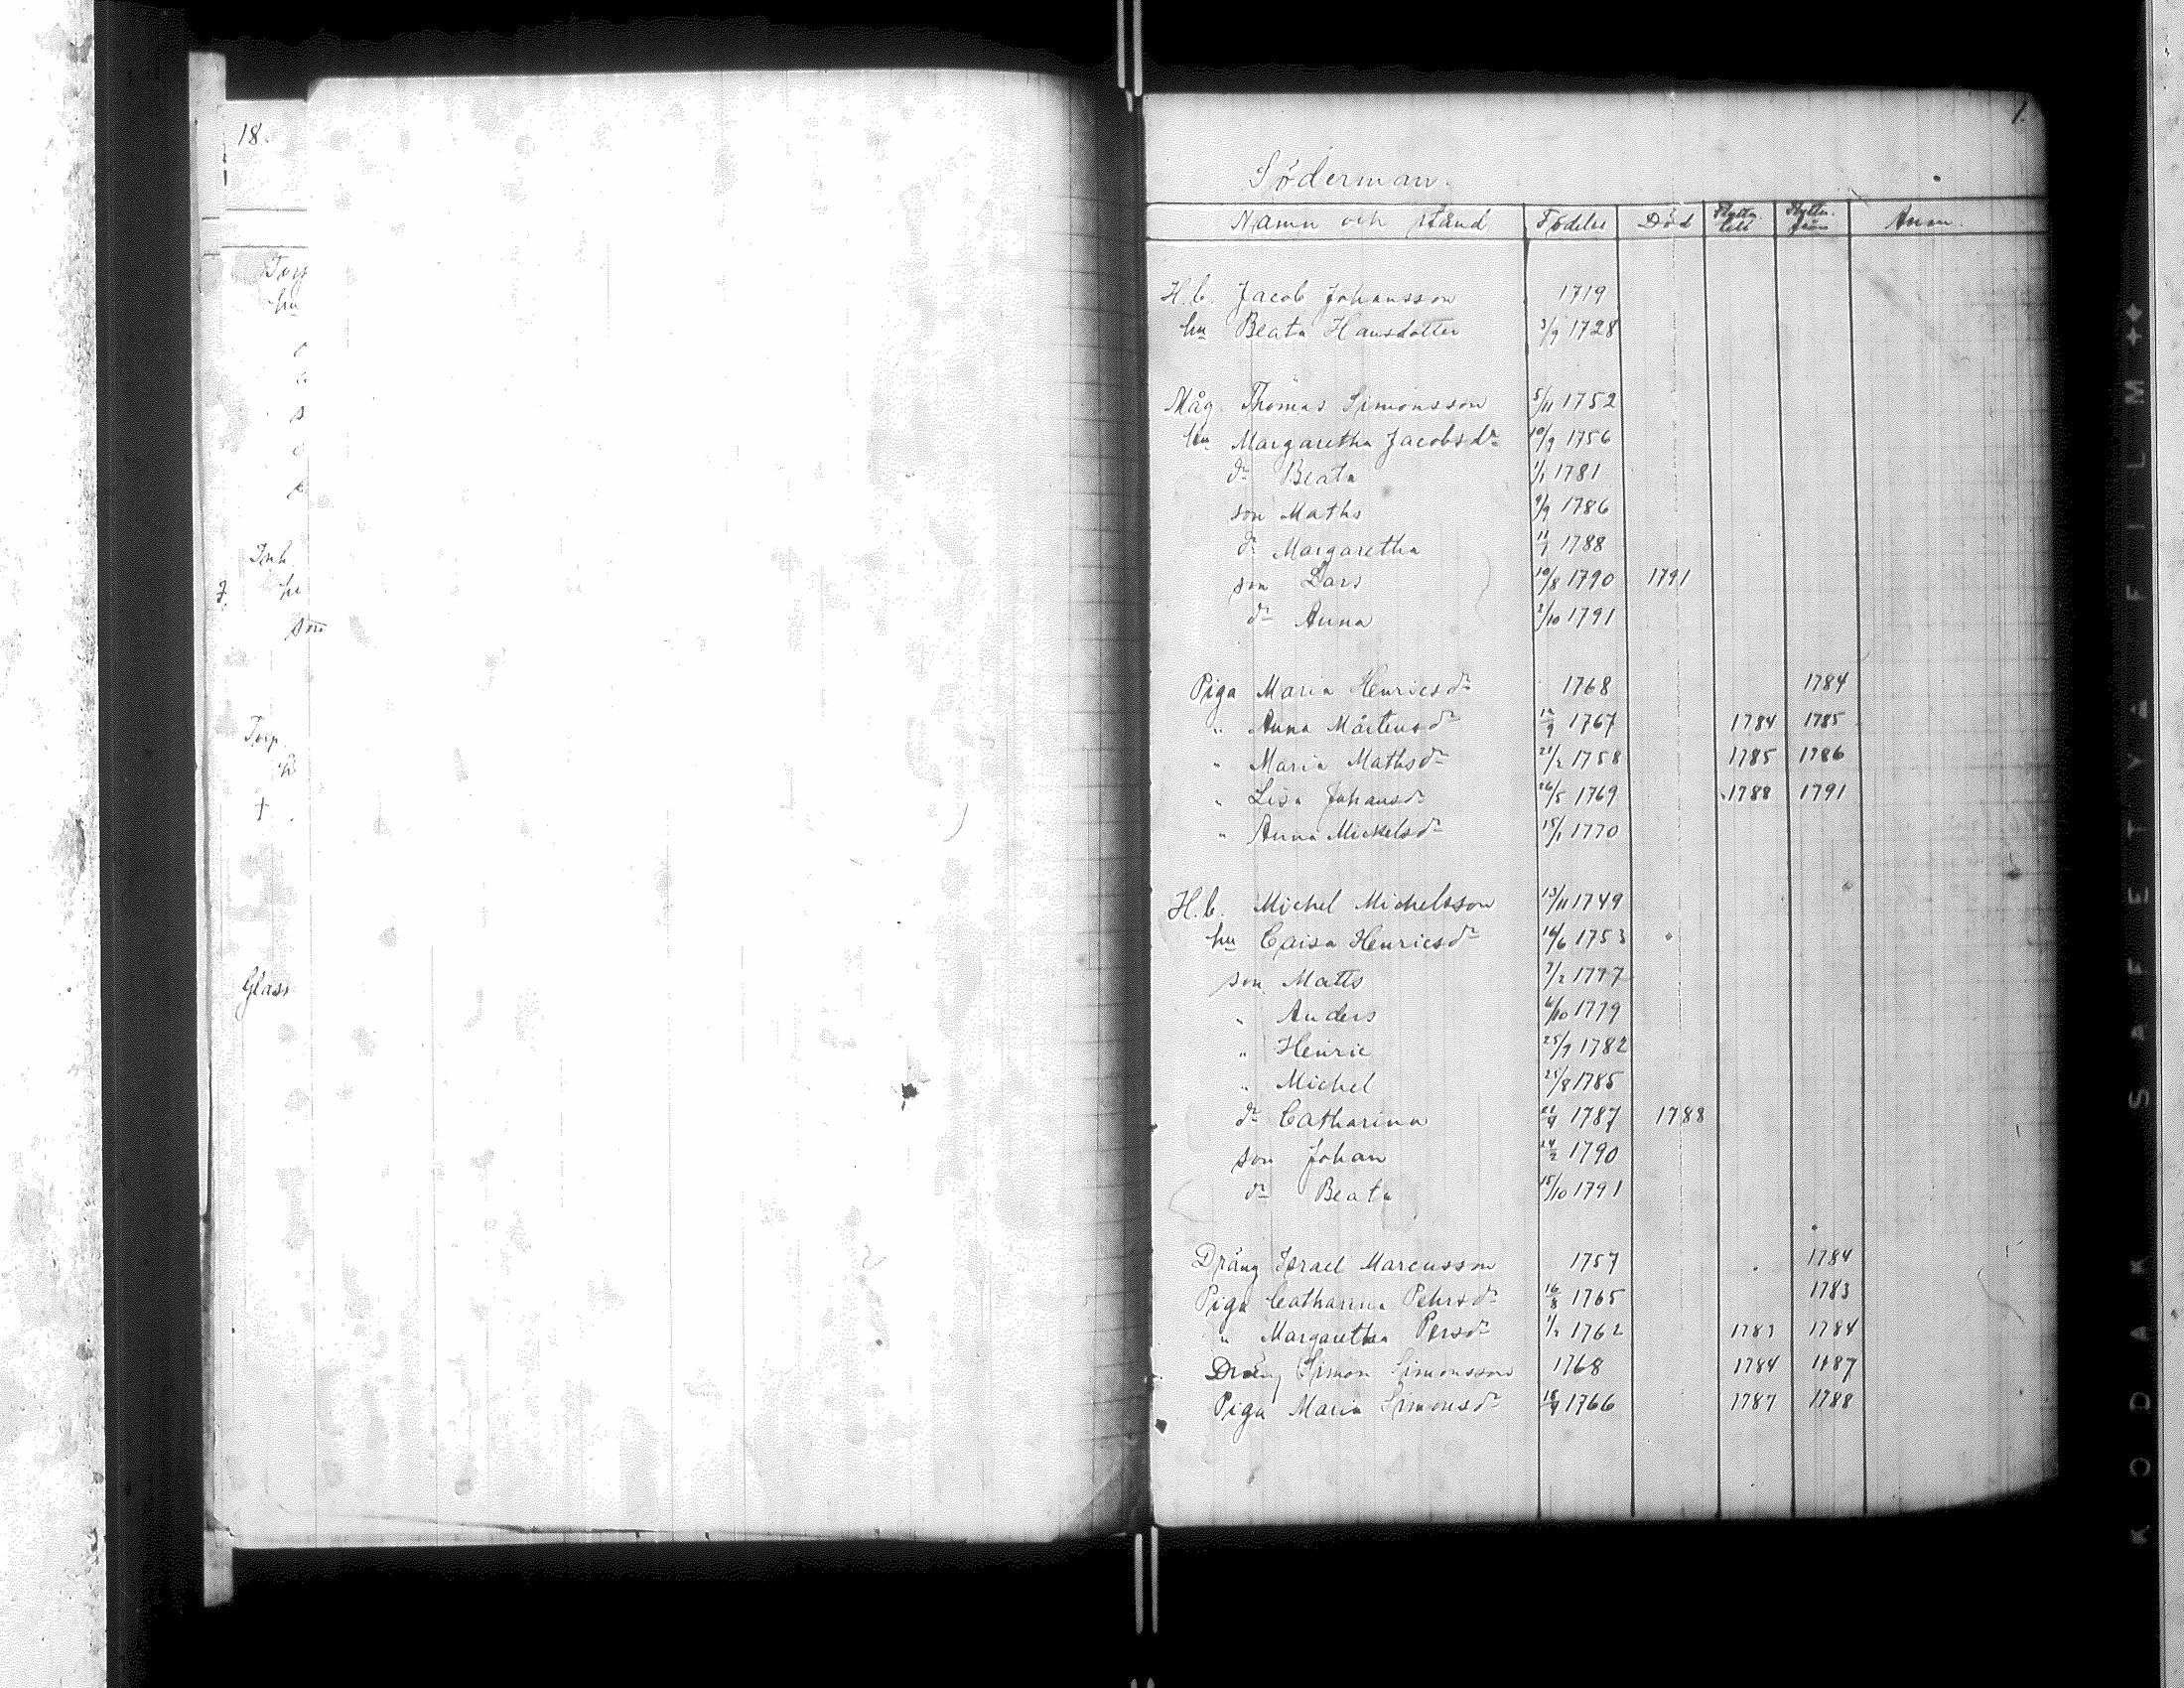 18.
Torp
hu
Inh
hu
son
Torp
†
Glas
1.
Söderman.
Namn och stånd Födelse Död Flytta till Flytta från Anm.
H.b. Jacob Johansson 1719
hu Beata Hansdotter 3/9 1728
Måg Thomas Simonsson 5/11 1752
hu Margaretha Jacobsdr 10/9 1756
dr Beata 1/1 1781
son Maths 9/9 1786
dr Margaretha 11/1 1788
son Lars 10/8 1790 1791
dr Anna 2/10 1791
Piga Maria Henricsdr 1768 1784
" Anna Mårtensdr 12/9 1767 1784 1785
" Maria Mathsdr 21/2 1758 1785 1786
" Lisa Johansdr 26/5 1769 1788 1791
" Anna Mickelsdr 15/1 1770
H.b. Michel Michelsson 13/11 1749
hu Caisa Henricsdr 16/6 1753
son Matts 7/2 1777
" Anders 6/10 1779
" Henric 25/9 1782
" Michel 25/8 1785
dr Catharina 21/9 1787 1788
son Johan 24/2 1790
dr Beata 15/10 1791
Dräng Israel Marcusson 1757 1784
Piga Catharina Pehrsdr 16/8 1765 1783
" Margaretha Persdr 1/2 1762 1783 1784
Dräng Simon Simonsson 1768 1784 1787
Piga Maria Simonsdr 18/9 1766 1787 1788
KODAK SAFETY FILM